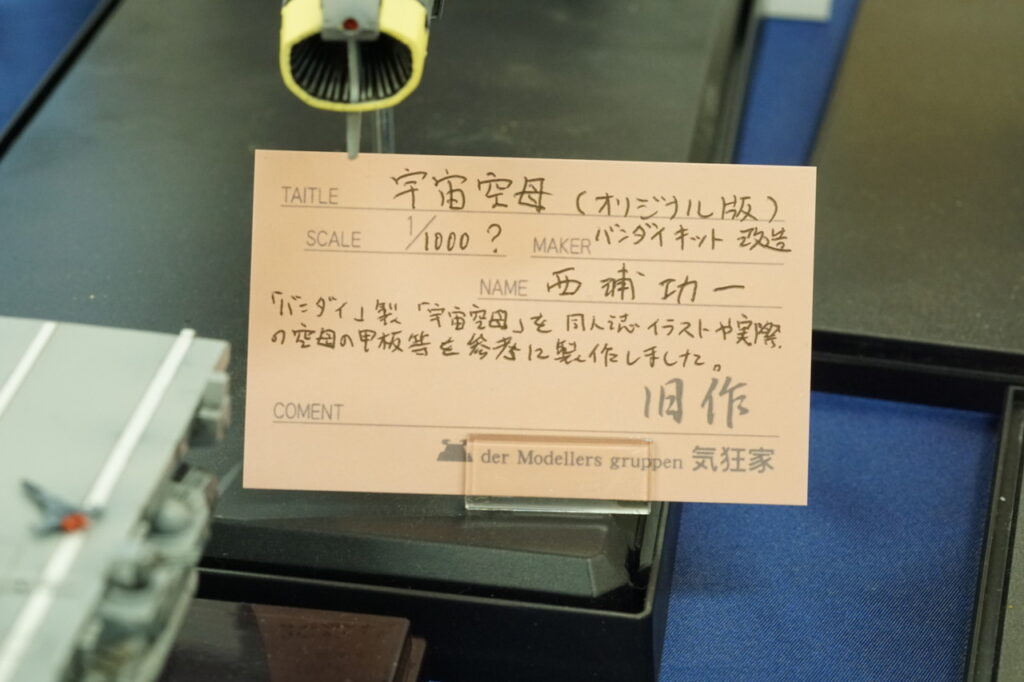 TAITLE 宇宙空母 (オリジナル版)
SCALE 1/1000 ? MAKER バンダイキット 改造
NAME 西浦功一
「バンダイ」製「宇宙空母」を同人誌イラストや実際
の空母の甲板等を参考に製作しました。
旧作
COMENT
der Modellers gruppen 気狂家